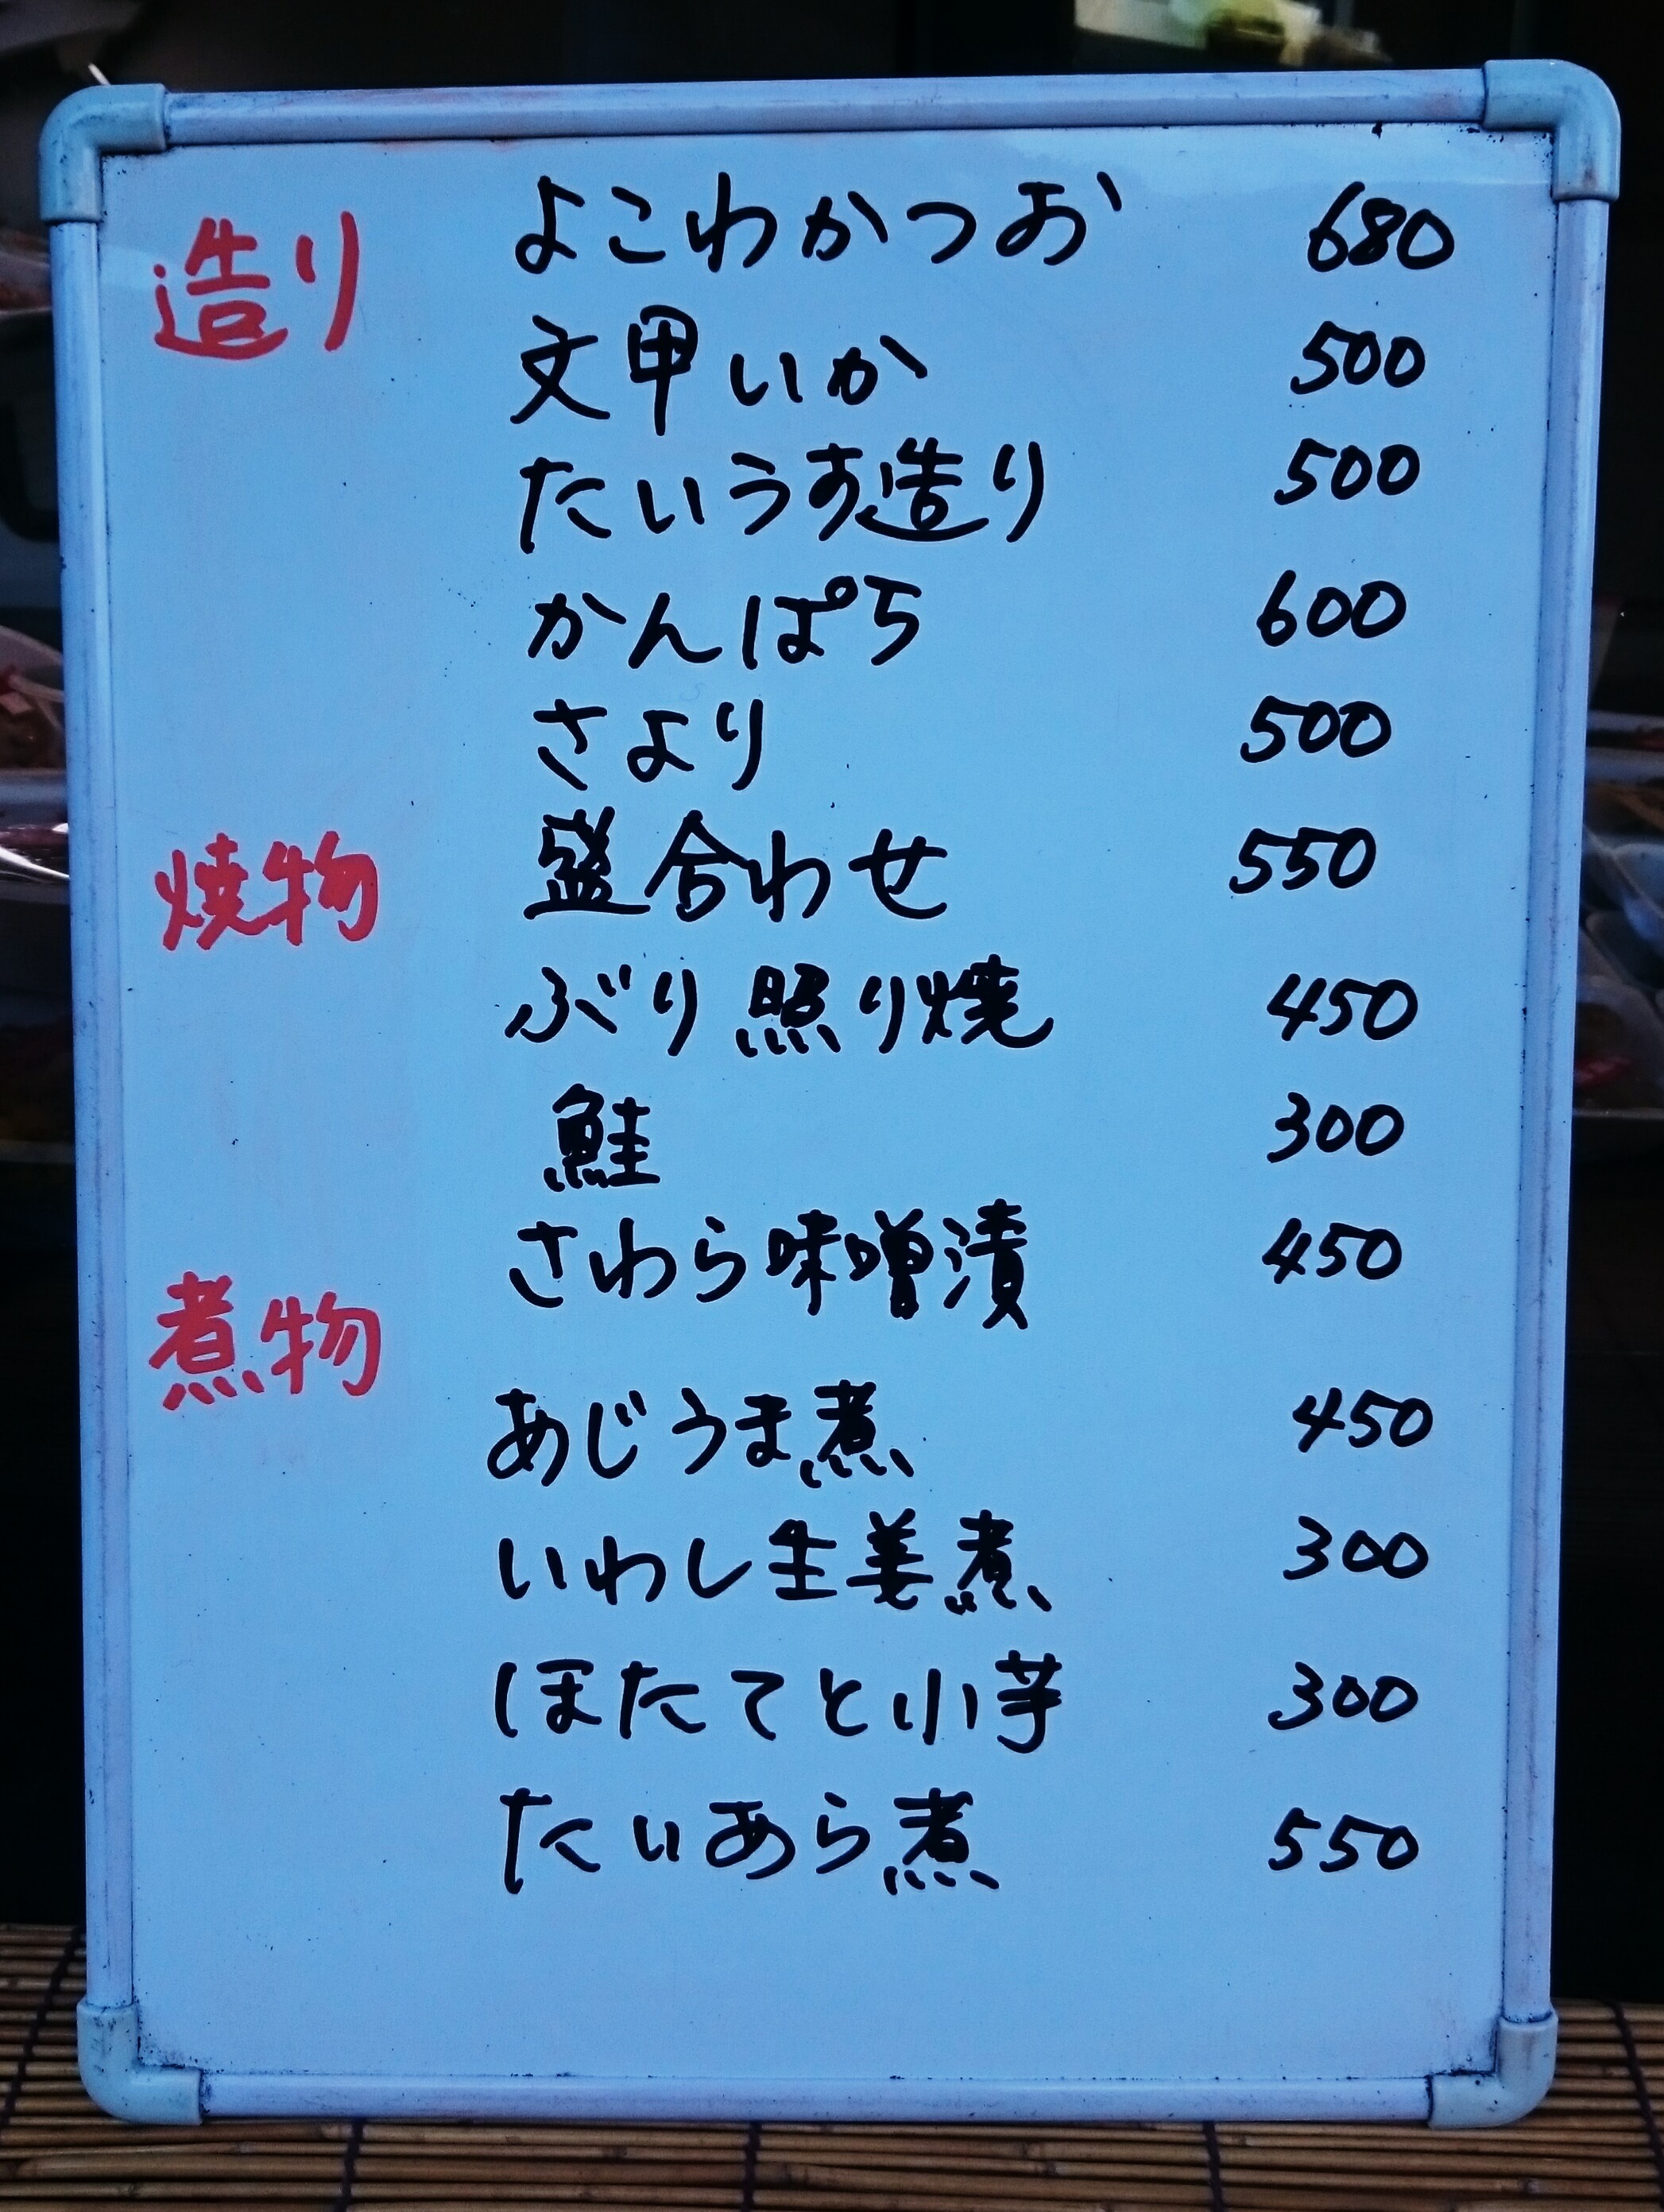 造り よこわかつお 680
文甲いか 500
たいうす造り 500
かんぱち 600
さより 500
焼物 盛合わせ 550
ぶり照り焼 450
鮭 300
さわら味噌漬 450
煮物
あじうま煮 450
いわし生姜煮 300
ほたてと小芋 300
たいあら煮 550